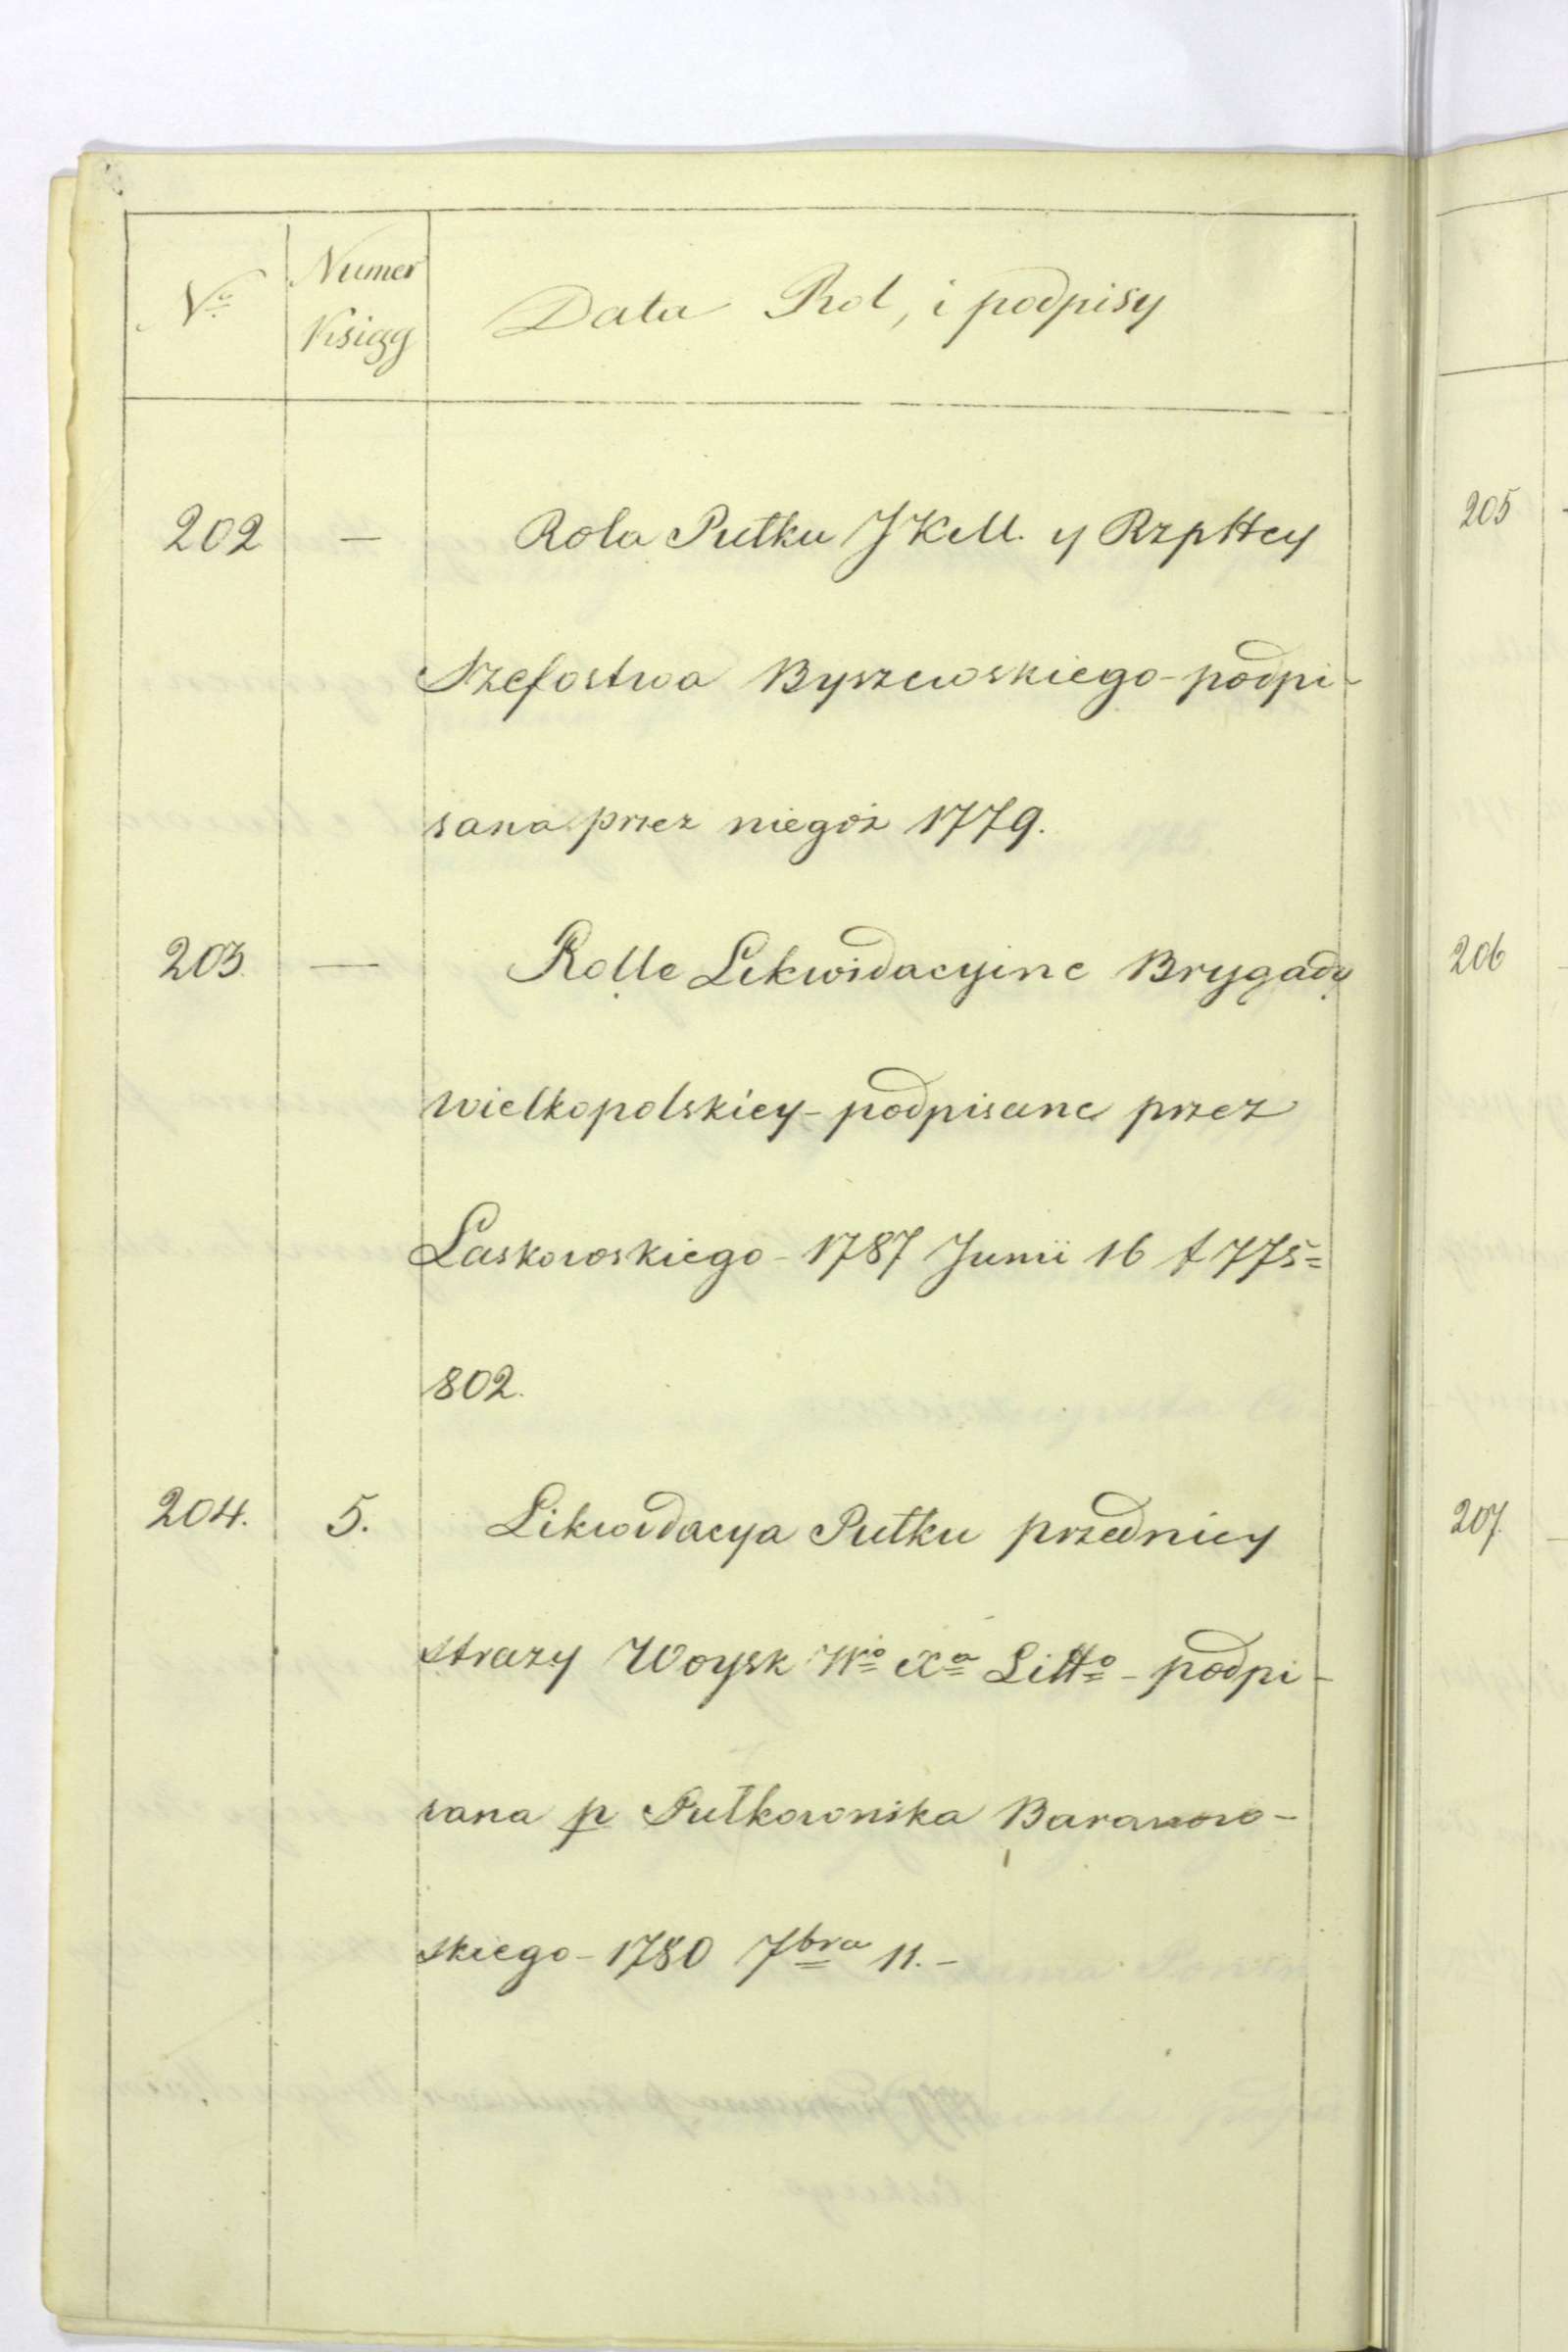 Nº Numer Ksiąg Data Rol, i podpisy
202 — Rola Pułku JKM. y Rzpltey
Szefostwa Byszewskiego - podpi-
sana przez niegoż 1779.
203. — Rolle Likwidacyine Brygady
wielkopolskiey - podpisane przez
Laskowskiego - 1787 Junii 16 f 775=
802.
204. 5. Likwidacya Pułku przedniey
strazy Woysk Wº Xª Littº - podpi-
sana p Pułkownika Baranow-
skiego - 1780 7bra 11. -
205
206
207.